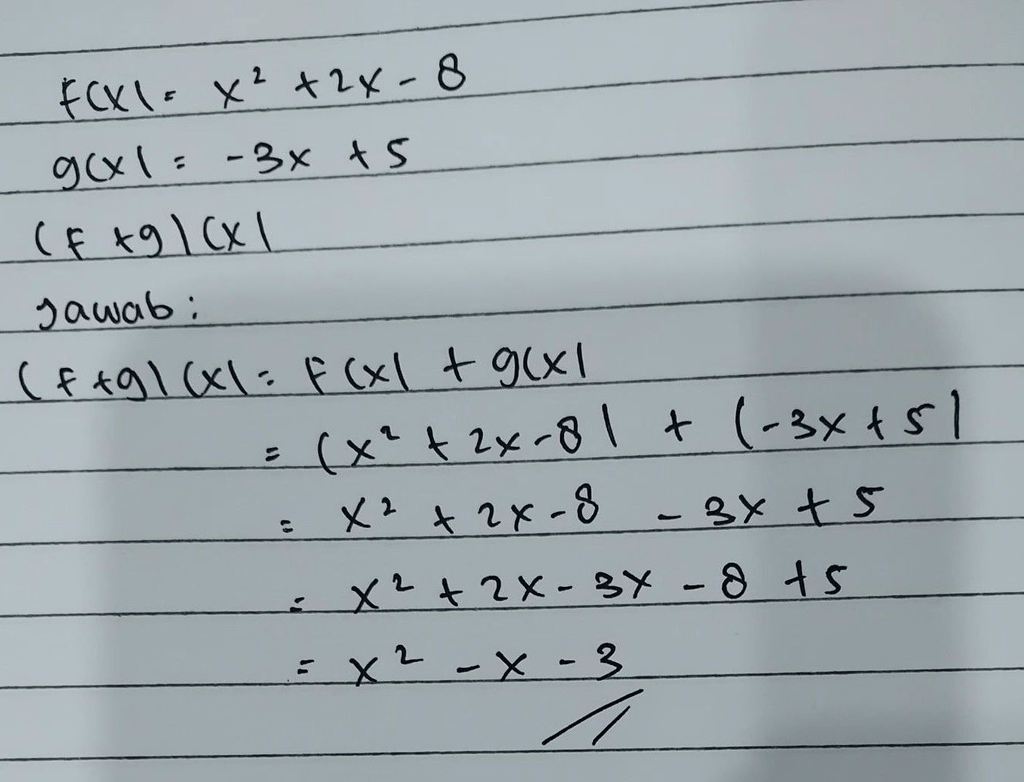 f(x) = x² + 2x - 8
g(x) = -3x + 5
(f + g) (x)
Jawab :
(f + g) (x) = f(x) + g(x)
= (x² + 2x - 8) + (-3x + 5)
= x² + 2x - 8 - 3x + 5
= x² + 2x - 3x - 8 + 5
= x² - x - 3